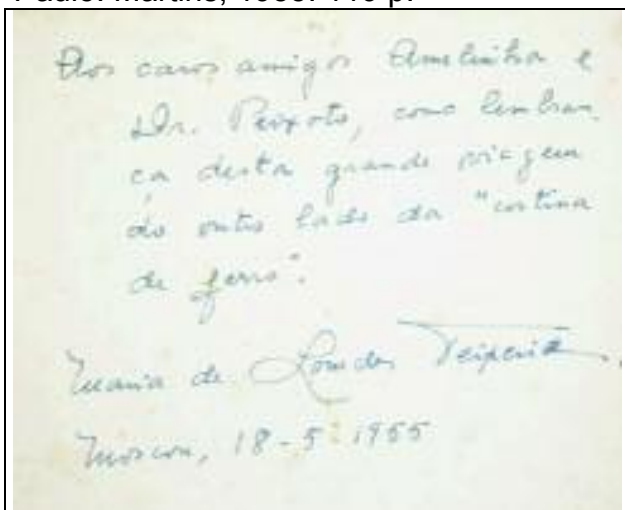 Paulo: Martins, p.
Aos caros amigos Amelinha e
Dr. Peixoto, como lembran-
ça desta grande viagem
ao outro lado da "cortina
de ferro".
Maria de Lourdes Teixeira.
Moscou, 18-5-1955